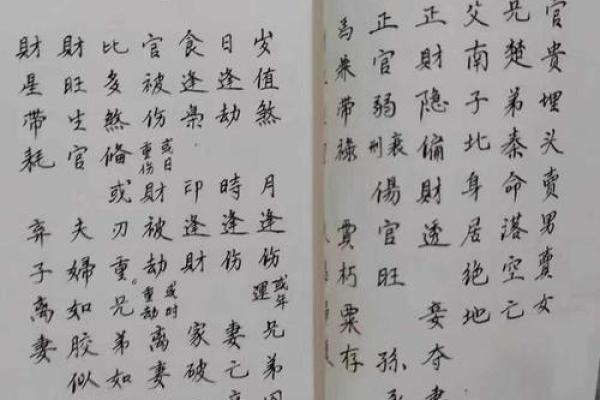 官貴埋头賣男賣女
兄楚弟秦命落空亡
父南子北身居绝地
正財隐偏財透 妾夺妻
正官弱衰刑傷官旺 孫
馬带祿 貫朽粟存
岁值煞 月逢伤或年運 兄弟因
日逢劫 時逢伤 妻亡
食逢枭 印逢財 家破
官被伤或日重伤財被劫或时重劫离妻
比多煞偹或刃重。兄弟如
財旺生官 夫婦如胶似
財星帶耗 弃子离妻